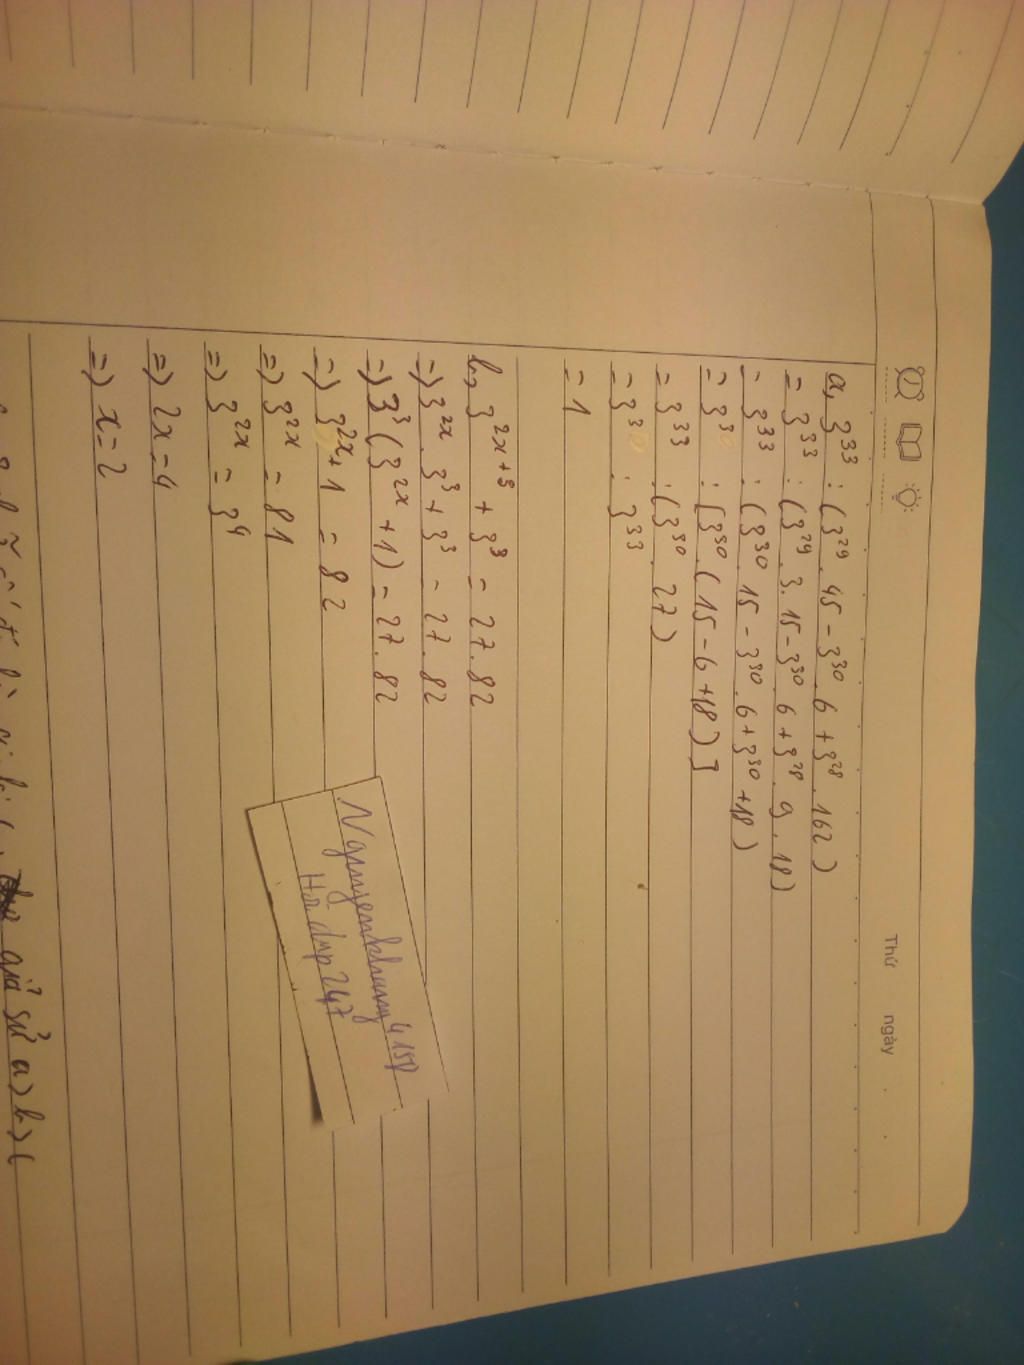 Thứ ngày
a, 3³³ : (3²⁹. 45 - 3³⁰. 6 + 3²⁸. 162)
= 3³³ : (3²⁹. 3. 15 - 3³⁰. 6 + 3²⁸. 9. 18)
= 3³³ : (3³⁰. 15 - 3³⁰. 6 + 3³⁰ + 18)
= 3³⁰ : [3³⁰. (15 - 6 + 18)]
= 3³³ : (3³⁰. 27)
= 3³ : 3³³
= 1
b, 3²ˣ⁺³ + 3³ = 27. 82
=) 3²ˣ. 3³ + 3³ = 27. 82
=) 3³ (3²ˣ + 1) = 27. 82
=) 3²ˣ + 1 = 82
=) 3²ˣ = 81
=) 3²ˣ = 3⁴
=) 2x = 4
=) x = 2
giả sử a > b > c
247